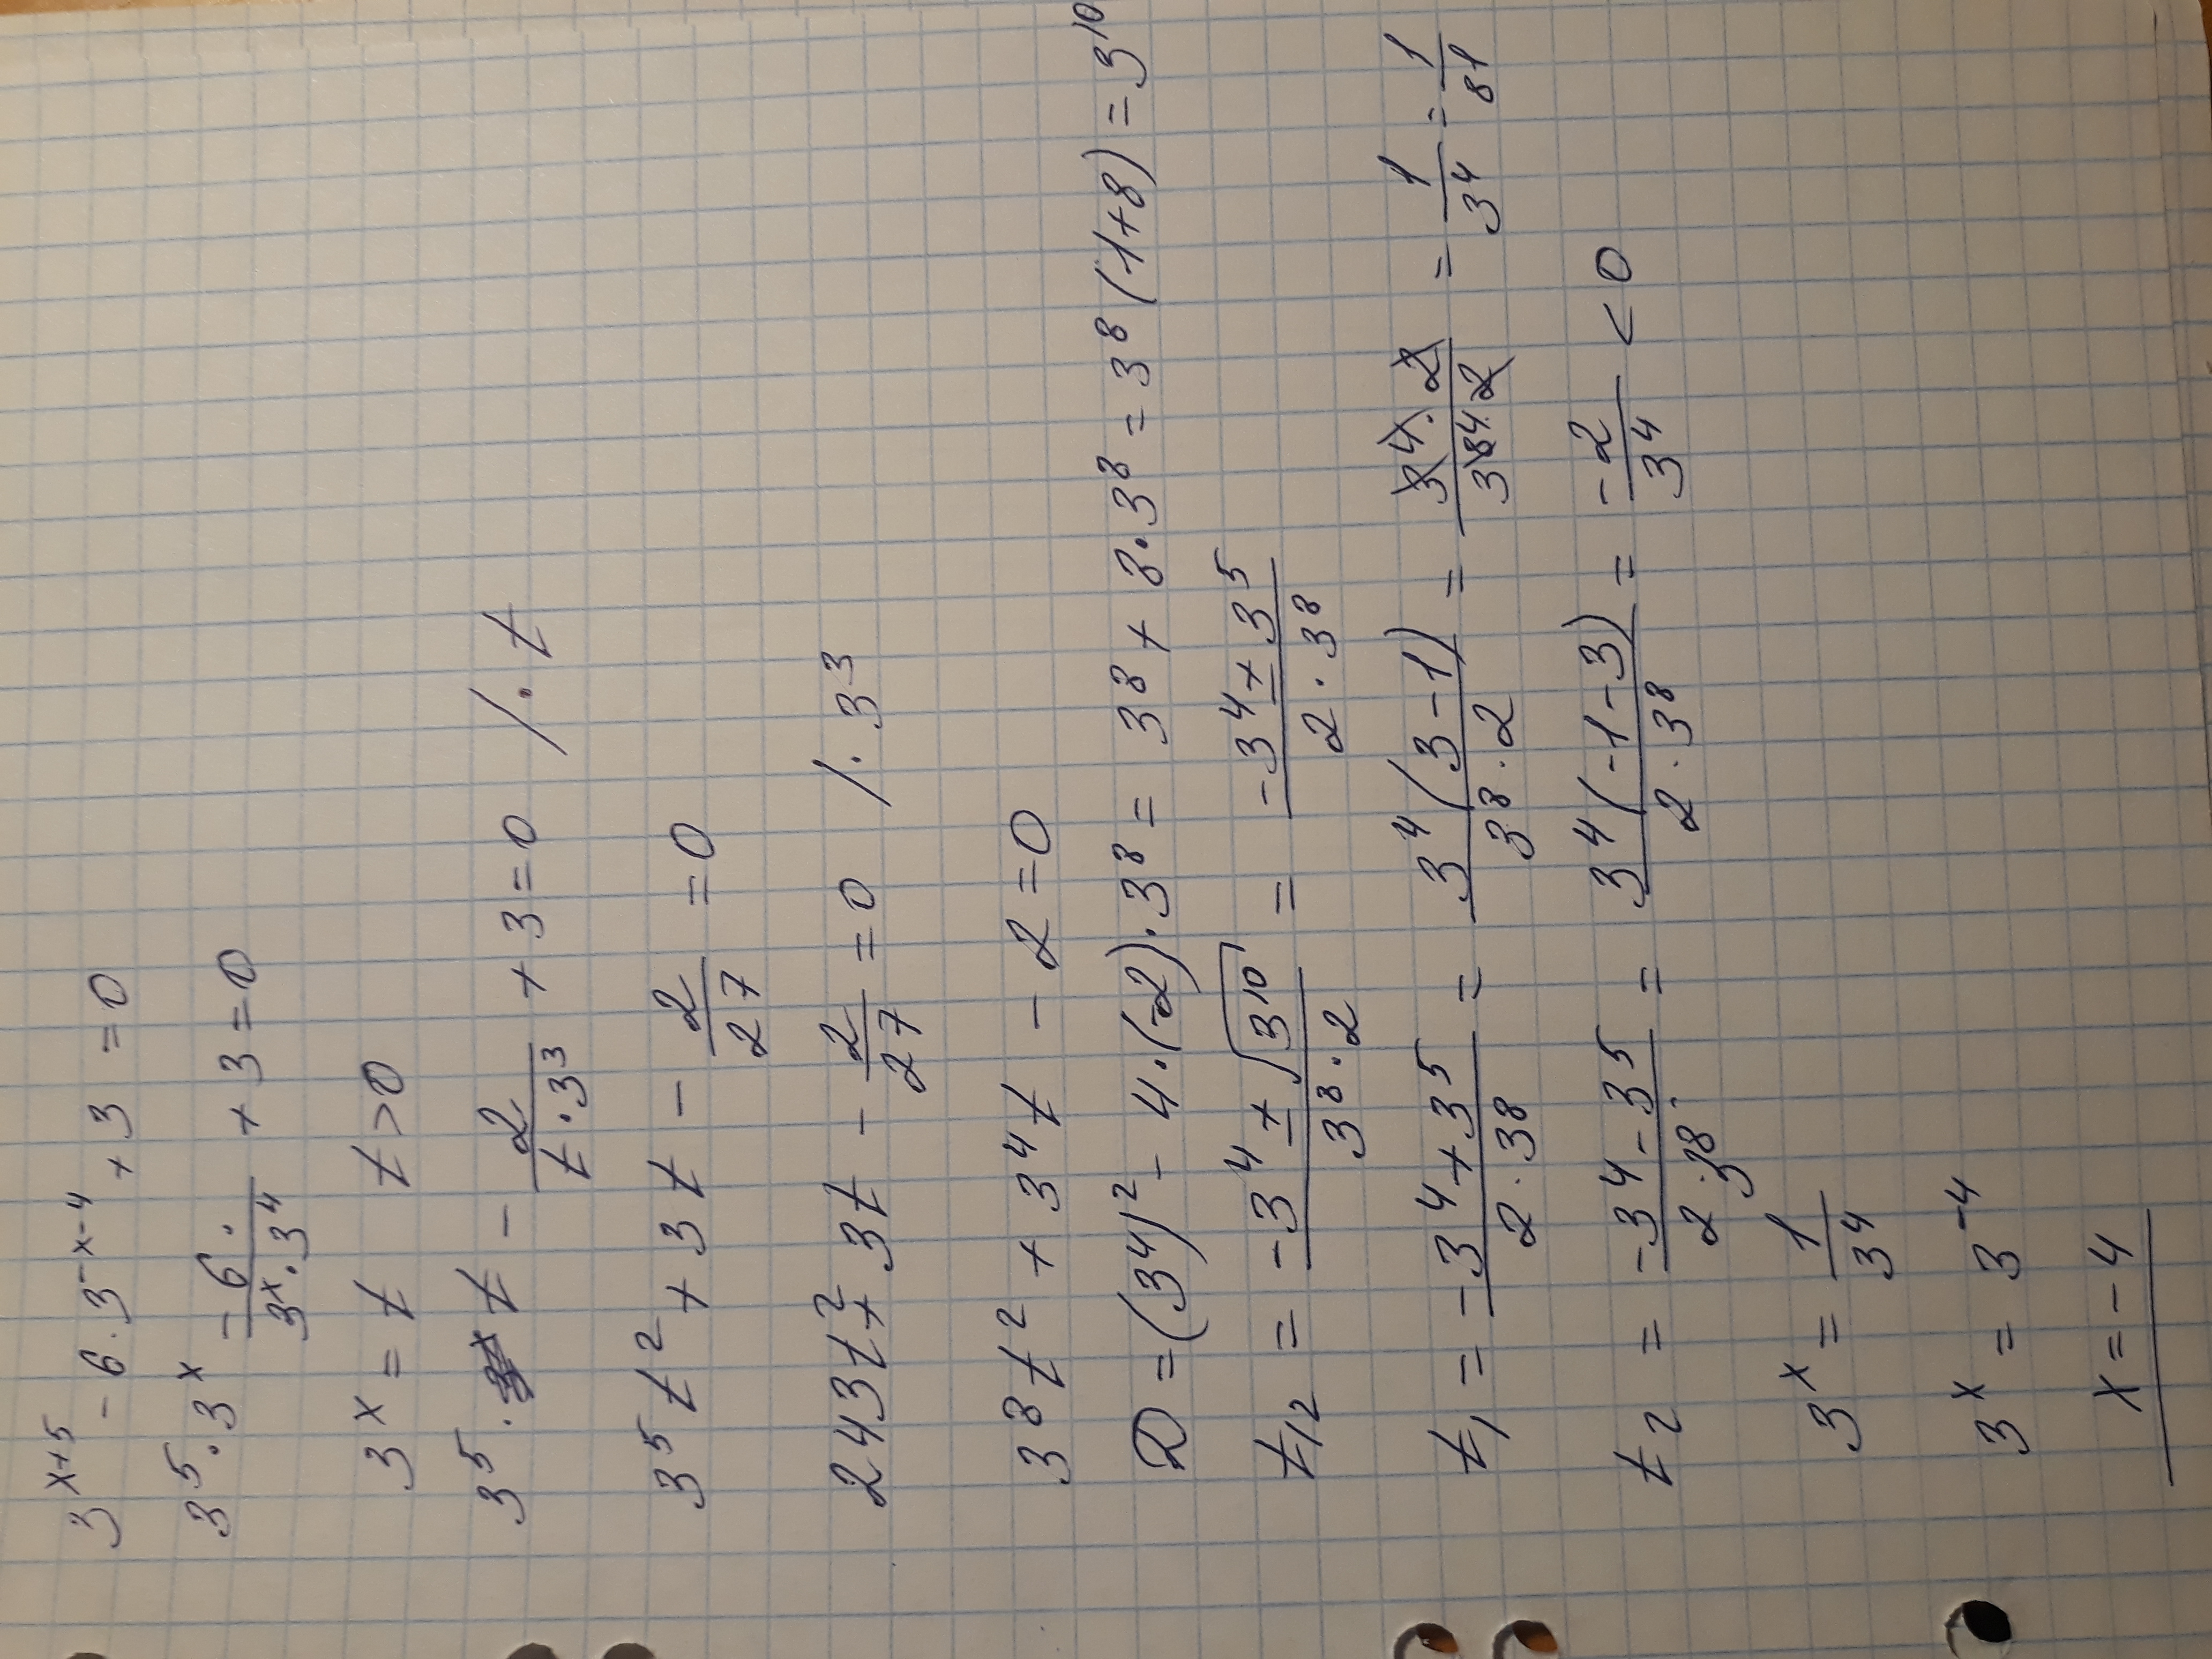 3^{x+5} - 6 · 3^{-x-4} + 3 = 0
3^5 · 3^x - \frac{6}{3^x · 3^4} + 3 = 0
3^x = t    t > 0
3^5 · t - \frac{2}{t · 3^3} + 3 = 0  / · t
3^5 t^2 + 3t - \frac{2}{27} = 0
243 t^2 + 3t - \frac{2}{27} = 0  / · 3^3
3^8 t^2 + 3^4 t - 2 = 0
D = (3^4)^2 - 4 · (-2) · 3^8 = 3^8 + 8 · 3^8 = 3^8 (1+8) = 3^{10}
t_{1,2} = \frac{-3^4 ± \sqrt{3^{10}}}{3^8 · 2} = \frac{-3^4 ± 3^5}{2 · 3^8}
t_1 = \frac{-3^4 + 3^5}{2 · 3^8} = \frac{3^4 (3-1)}{3^8 · 2} = \frac{3^4 · 2}{3^{84} · 2} = \frac{1}{3^4} = \frac{1}{81}
t_2 = \frac{-3^4 - 3^5}{2 · 3^8} = \frac{3^4 (-1-3)}{2 · 3^8} = -\frac{2}{3^4} < 0
3^x = \frac{1}{3^4}
3^x = 3^{-4}
x = -4